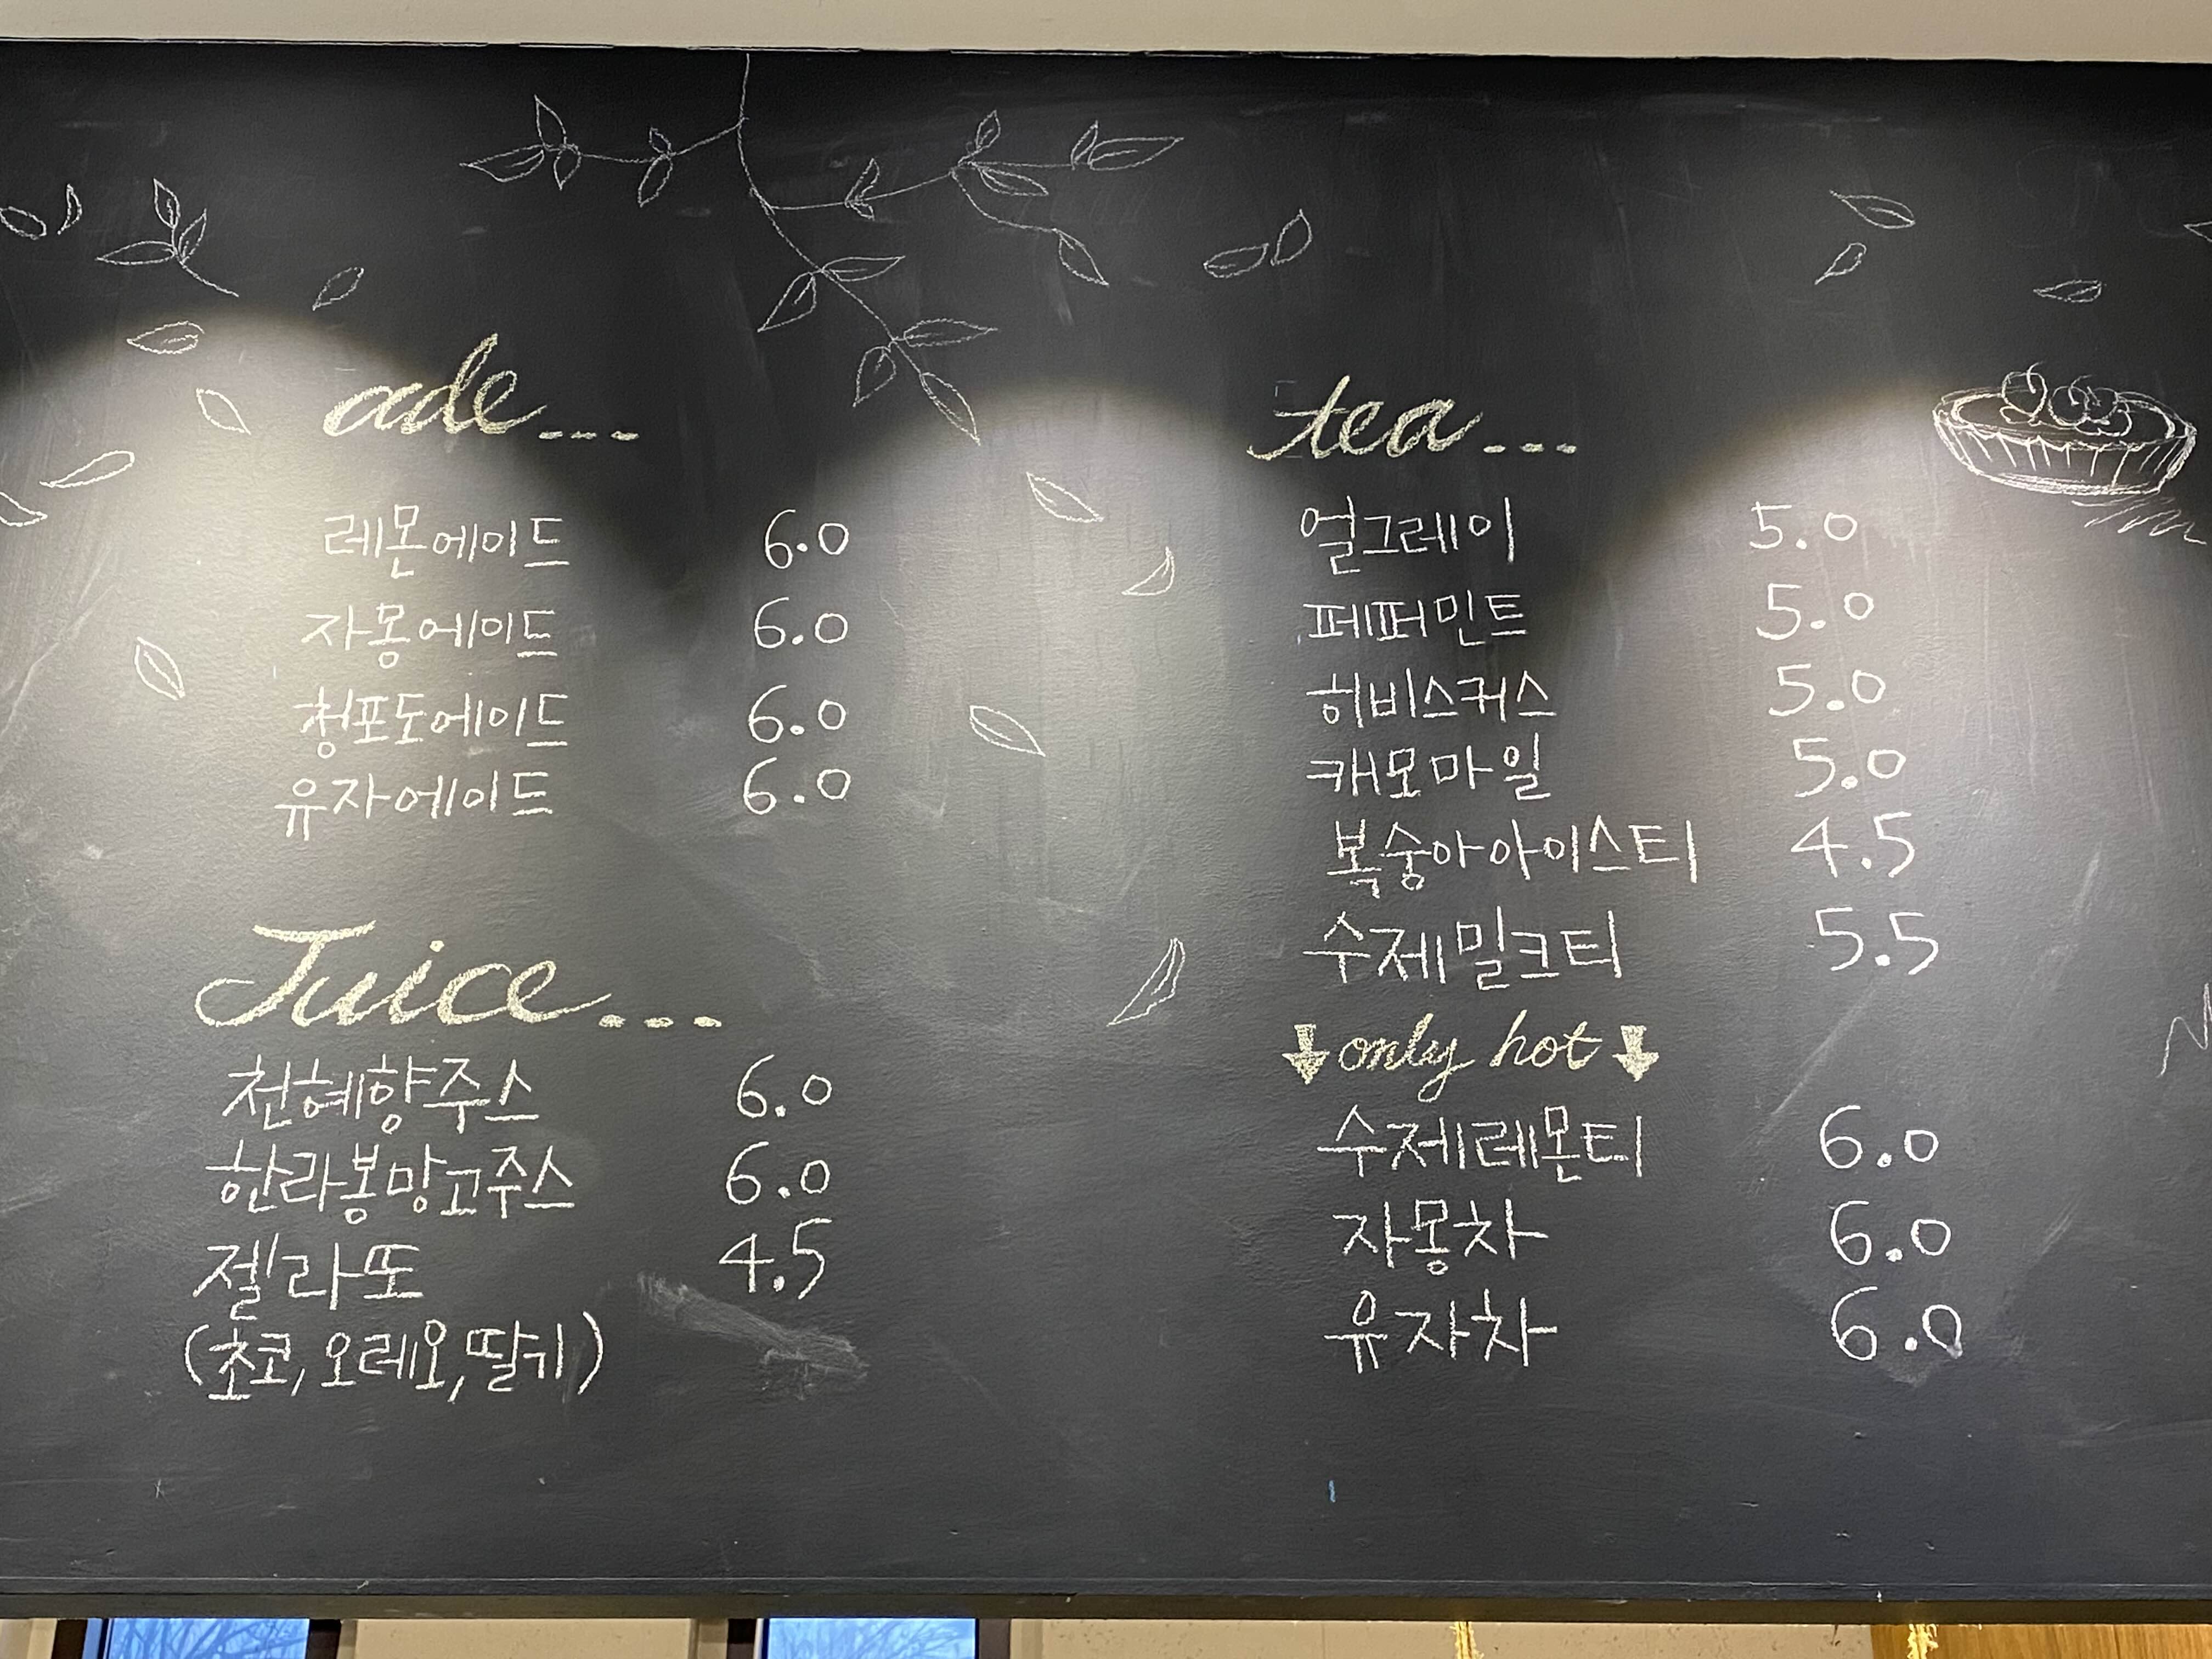 ade...
레몬에이드 6.0
자몽에이드 6.0
청포도에이드 6.0
유자에이드 6.0
Juice...
천혜향주스 6.0
한라봉망고주스 6.0
젤라또 4.5
(초코, 오레오, 딸기)
tea...
얼그레이 5.0
페퍼민트 5.0
히비스커스 5.0
캐모마일 5.0
복숭아아이스티 4.5
수제밀크티 5.5
↓only hot↓
수제레몬티 6.0
자몽차 6.0
유자차 6.0